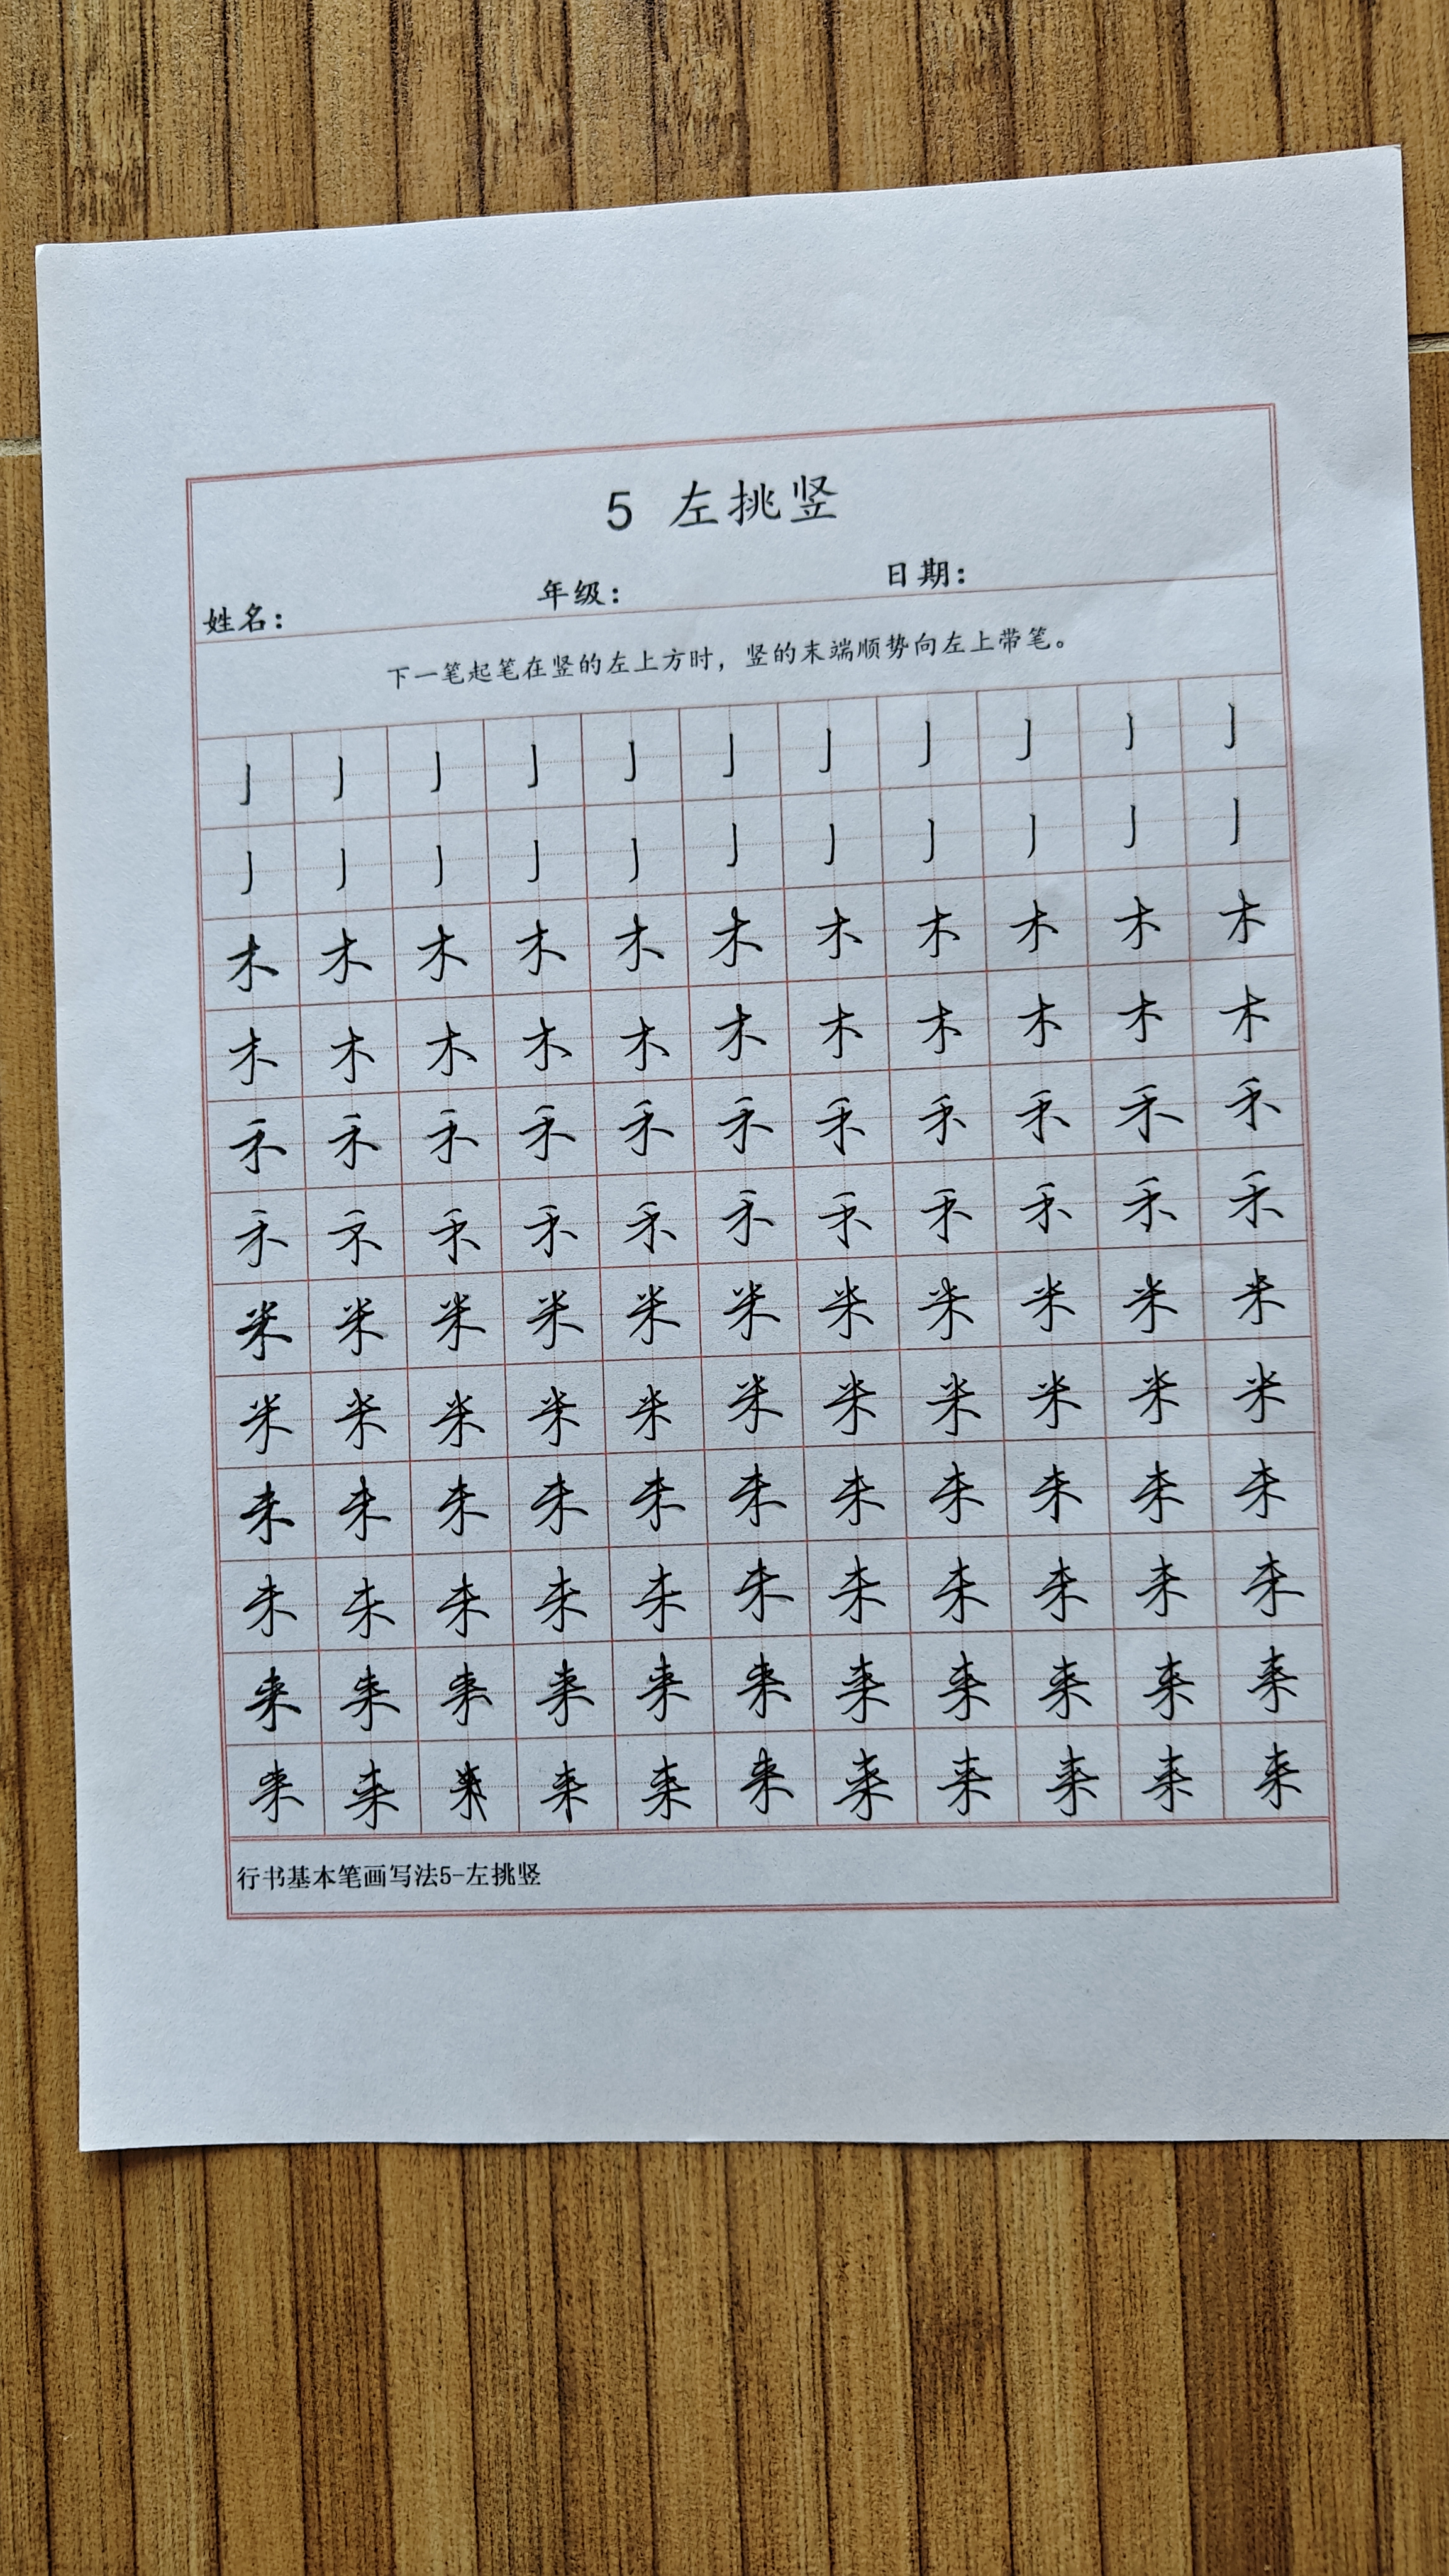 5 左挑竖
姓名： 年级： 日期：
下一笔起笔在竖的左上方时，竖的末端顺势向左上带笔。
亅 亅 亅 亅 亅 亅 亅 亅 亅 亅 亅
亅 亅 亅 亅 亅 亅 亅 亅 亅 亅 亅
木 木 木 木 木 木 木 木 木 木 木
木 木 木 木 木 木 木 木 木 木 木
禾 禾 禾 禾 禾 禾 禾 禾 禾 禾 禾
禾 禾 禾 禾 禾 禾 禾 禾 禾 禾 禾
米 米 米 米 米 米 米 米 米 米 米
米 米 米 米 米 米 米 米 米 米 米
未 未 未 未 未 未 未 未 未 未 未
未 未 未 未 未 未 未 未 未 未 未
来 来 来 来 来 来 来 来 来 来 来
来 来 来 来 来 来 来 来 来 来
行书基本笔画写法5-左挑竖